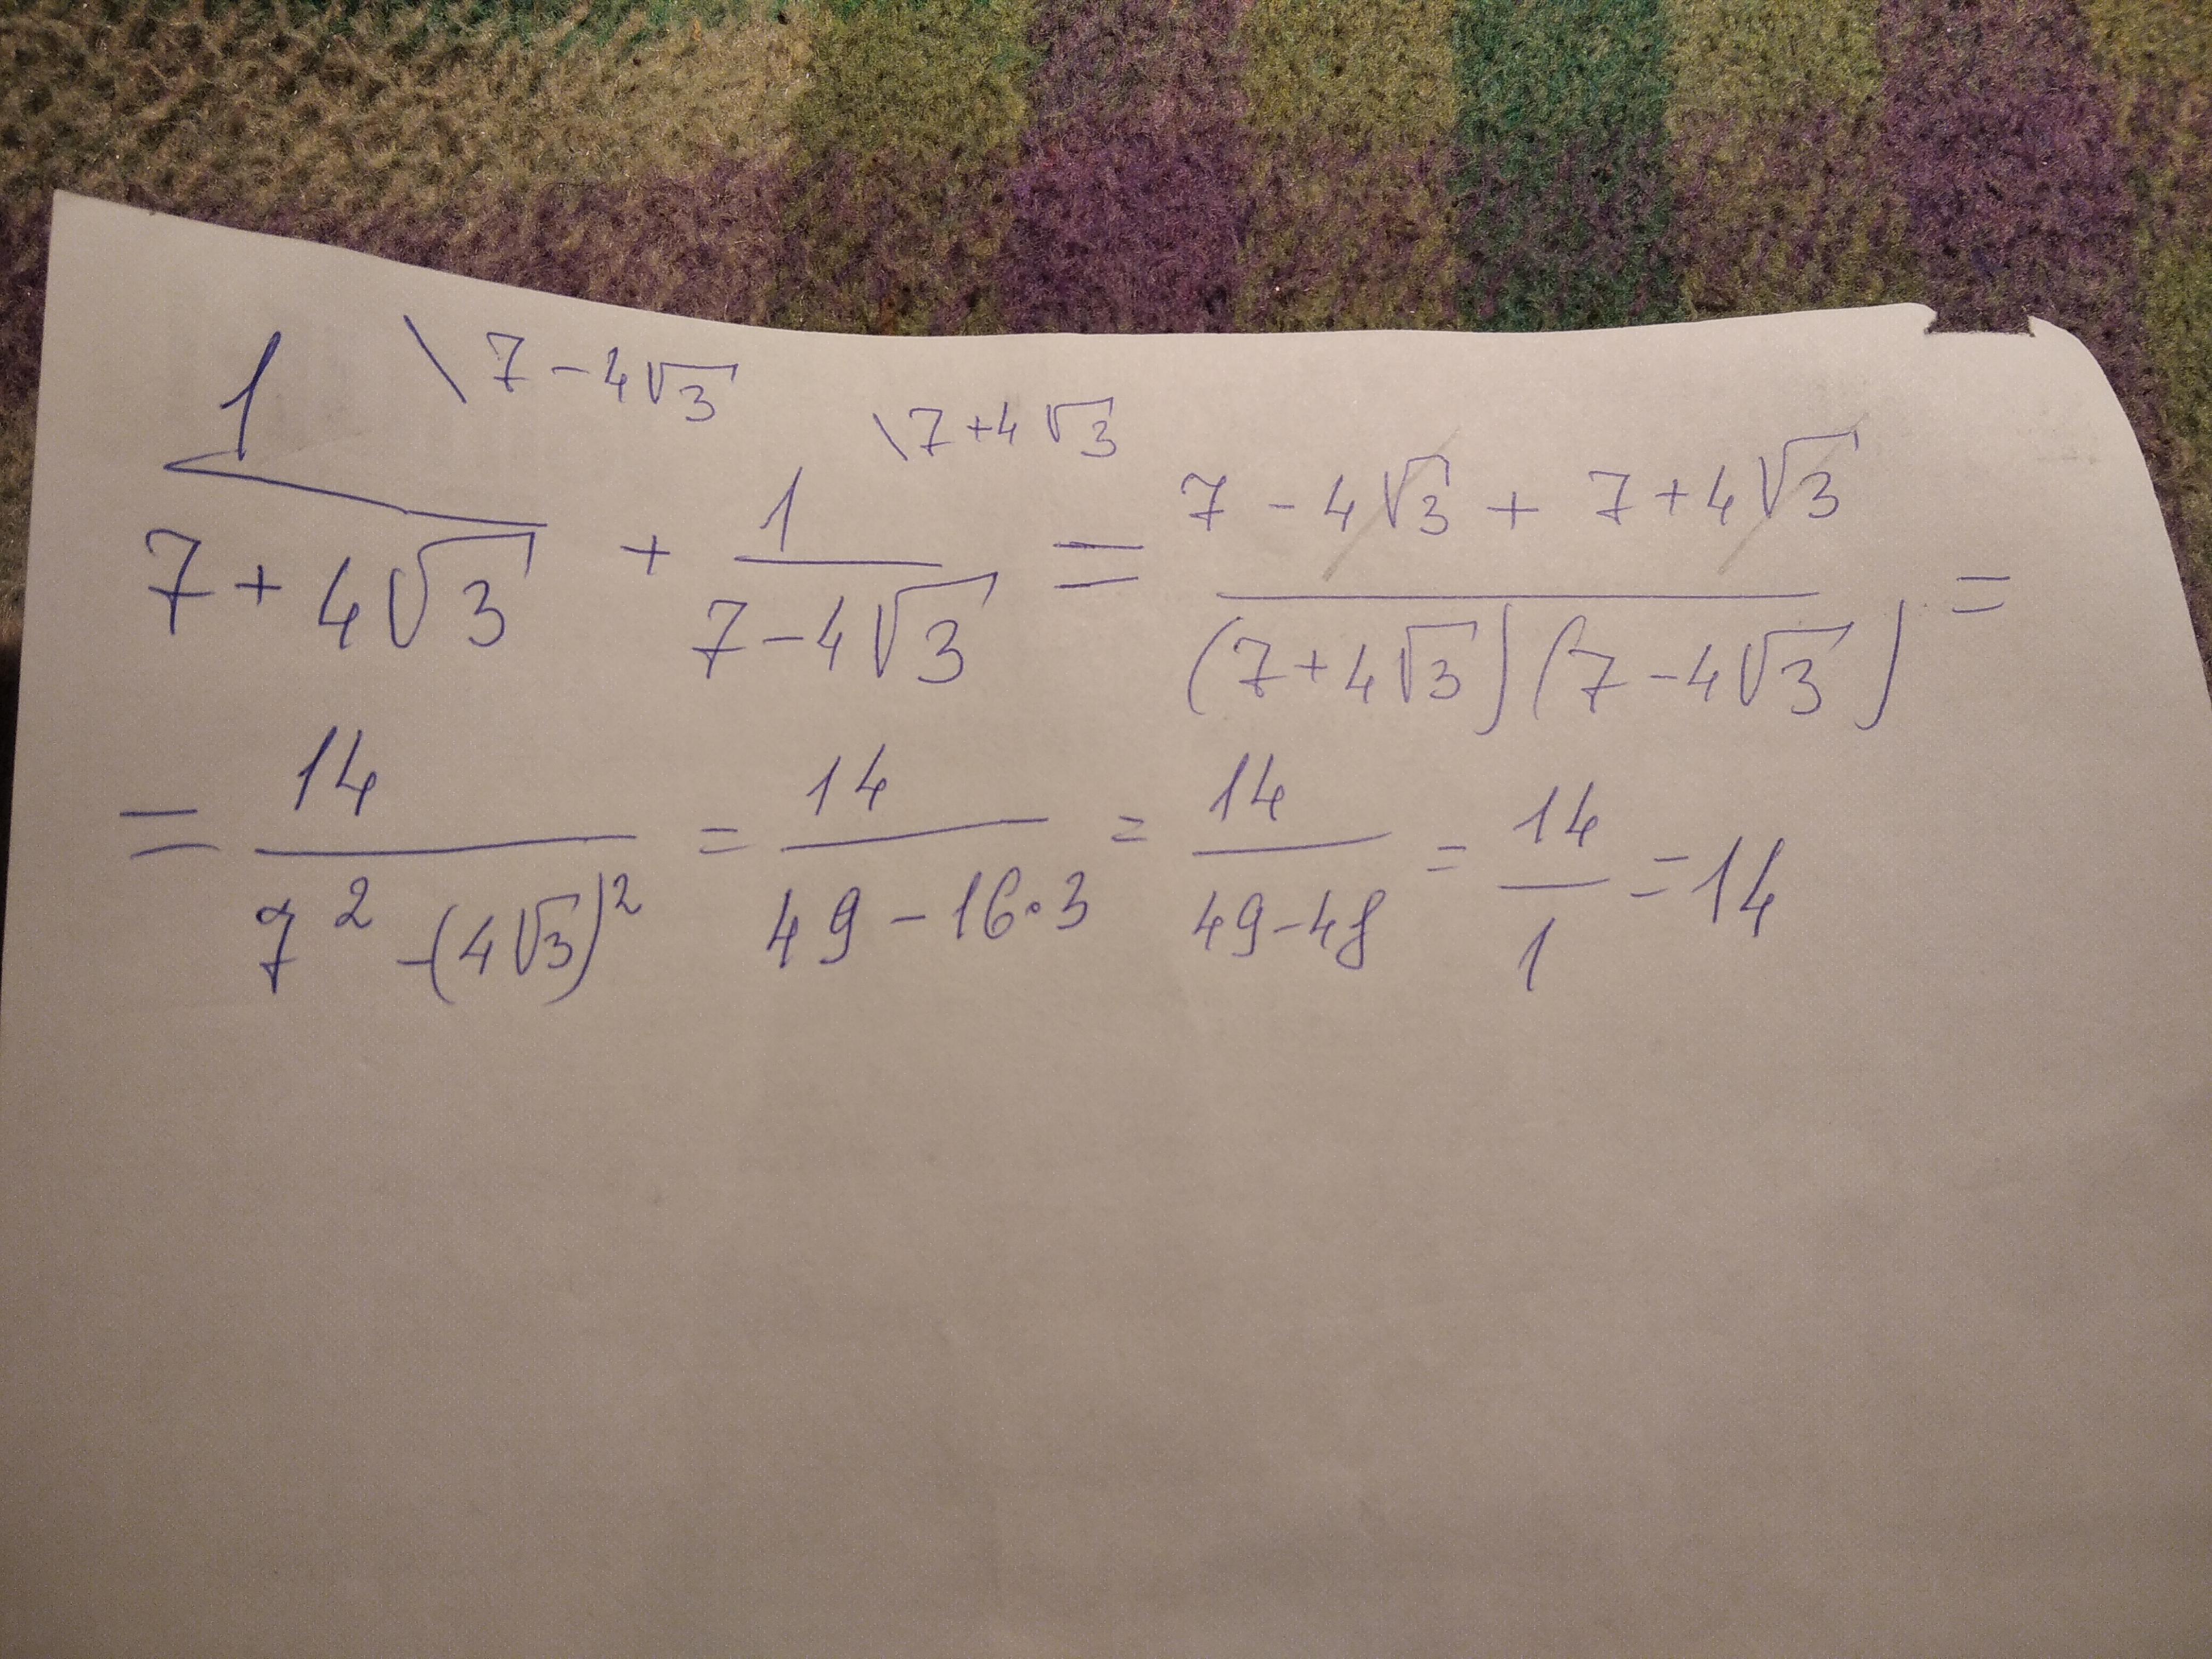 1 \7-4√3
\7+4√3
1/(7+4√3) + 1/(7-4√3) = (7-4√3+7+4√3)/((7+4√3)(7-4√3)) =
= 14/(7²-(4√3)²) = 14/(49-16·3) = 14/(49-48) = 14/1 = 14